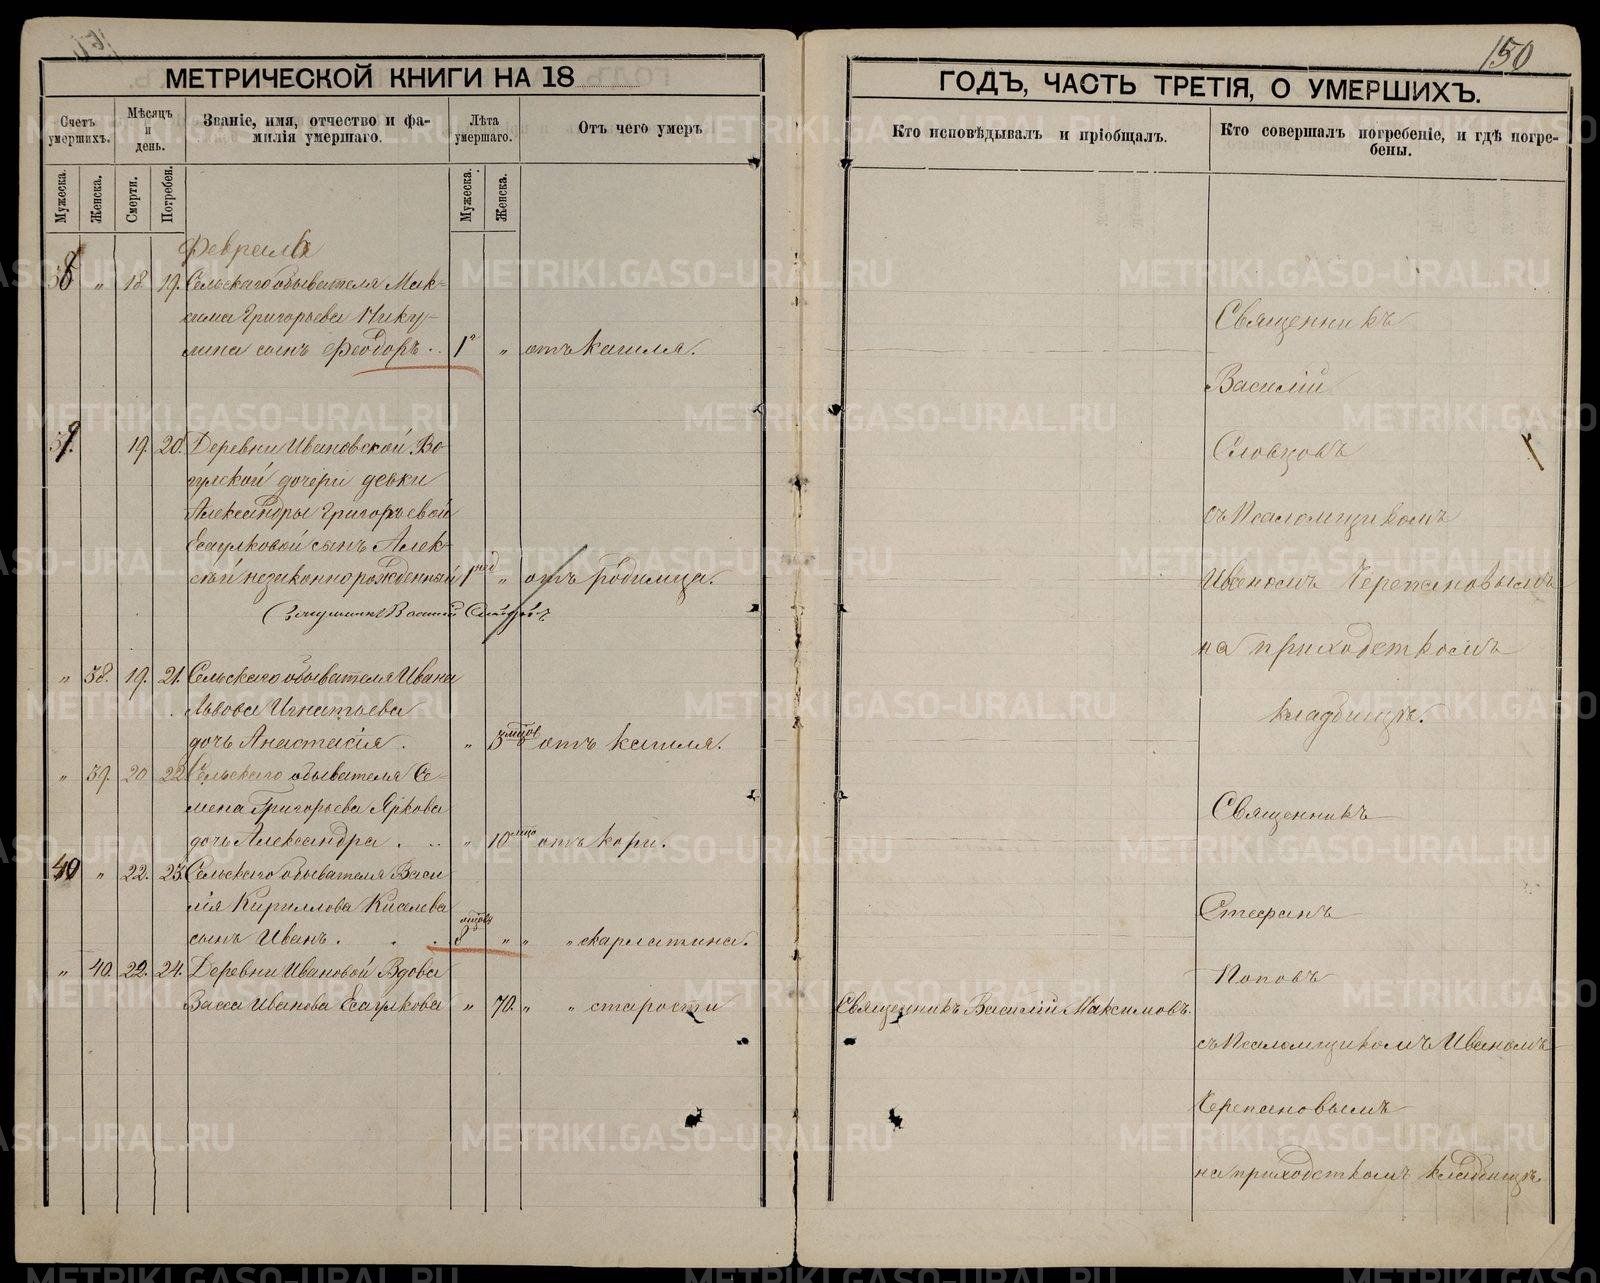 150
МЕТРИЧЕСКОЙ КНИГИ НА 18
Счетъ умершихъ.
Мѣсяцъ и день.
Званіе, имя, отчество и фа-
милія умершаго.
Лѣта умершаго.
Отъ чего умеръ
Мужеска.
Женска.
Смерти.
Погребен.
Мужеска.
Женска.
Февраль
38 " 18. 19. Сельскаго обывателя Мак-
сима Григорьева Нику-
лина сынъ Феодоръ .. 1 " отъ кашля.
39. 19. 20. Деревни Ивановской Во-
дочери девки
Александры Григорьевой
Есаулковой сынъ Алек-
сѣй незаконнорожденный 1 " отъ родимца.
" 38. 19. 21. Сельскаго обывателя Ивана
Львова Игнатьева
дочь Анастасія . " 3 отъ кашля.
" 39. 20 22 Сельскаго обывателя Се-
мена Григорьева Яркова
дочь Александра . .. " 10 отъ кори.
40 " 22. 23. Сельскаго обывателя Васи
лія Кириллова Киселева
сынъ Иванъ . . . 8 " " " скарлатина.
" 40. 22. 24. Деревни Ивановой Вдова
Васса Иванова Есаулкова " 70. " " старости
ГОДЪ, ЧАСТЬ ТРЕТІЯ, О УМЕРШИХЪ.
Кто исповѣдывалъ и пріобщалъ.
Кто совершалъ погребеніе, и гдѣ погре-
бены.
Священникъ
Василій
Словцовъ
съ Псаломщикомъ
Иваномъ Черепановымъ
на приходскомъ
кладбищѣ.
Священникъ
Стефанъ
Поповъ
Священникъ Василій Максимовъ.
съ Псаломщикомъ Иваномъ
Черепановымъ
на приходскомъ кладбищѣ.
METRIKI.GASO-URAL.RU